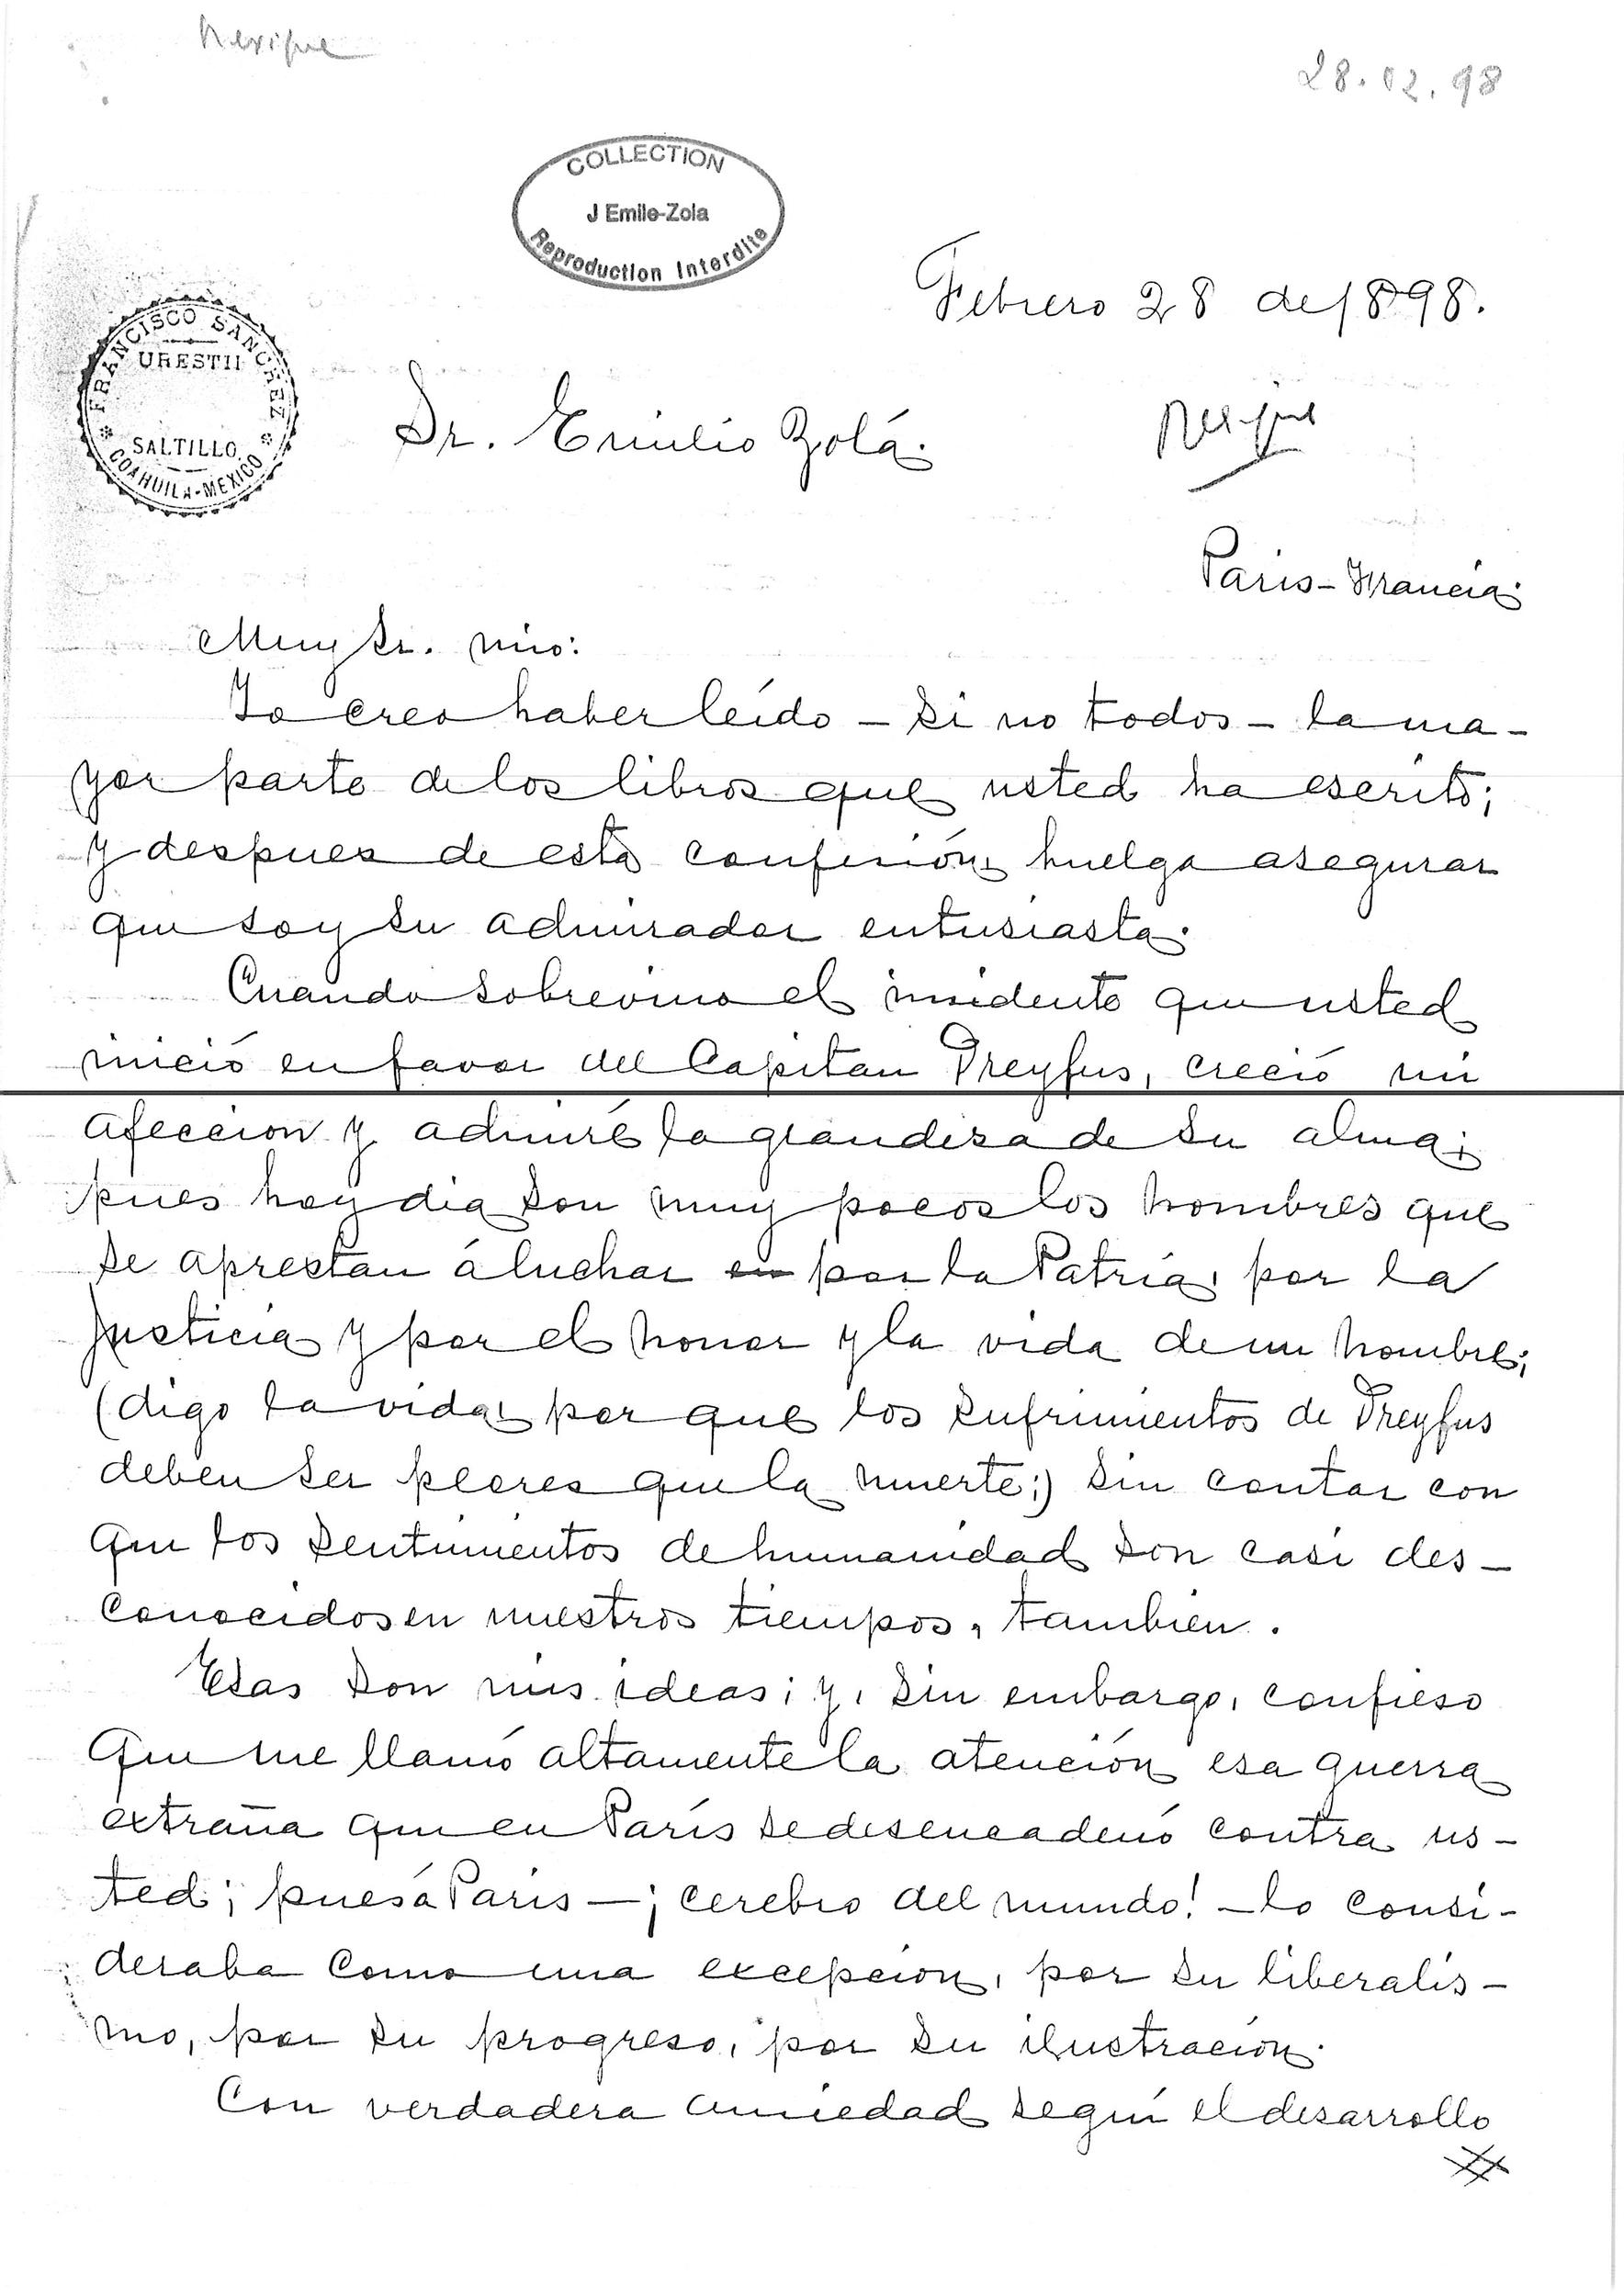 Mexique
28.02.98
COLLECTION
J Emile-Zola
Reproduction Interdite
Febrero 28 de 1898.
FRANCISCO SANCHEZ
URESTI
SALTILLO.
COAHUILA-MEXICO
Sr. Emilio Zolá.
Mexique
Paris - Francia.
Muy Sr. mio:
Yo creo haber leído – si no todos – la ma-
yor parte de los libros que usted ha escrito;
y despues de esta confesión, huelga asegurar
que soy su admirador entusiasta.
Cuando sobrevino el incidente que usted
inició en favor del Capitan Dreyfus, creció mi
afeccion y admiré la grandeza de su alma;
pues hoy dia son muy pocos los hombres que
se aprestan á luchar en por la Patria, por la
justicia y por el honor y la vida de un hombre;
(digo la vida, por que los sufrimientos de Dreyfus
deben ser peores que la muerte;) sin contar con
que los sentimientos de humanidad son casi des-
conocidos en nuestros tiempos, tambien.
Esas son mis ideas; y, sin embargo, confieso
que me llamó altamente la atención esa guerra
extraña que en París se desencadenó contra us-
ted; pues á Paris – ¡cerebro del mundo! – lo consi-
deraba como una excepcion, por su liberalis-
mo, por su progreso, por su ilustracion.
Con verdadera ansiedad seguí el desarrollo